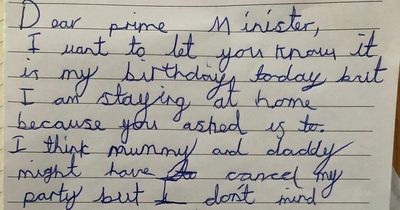 Dear prime Minister,
I want to let you know it
is my birthday today but
I am staying at home
because you asked is to.
I think mummy and daddy
might have to cancel my
party but I don't mind